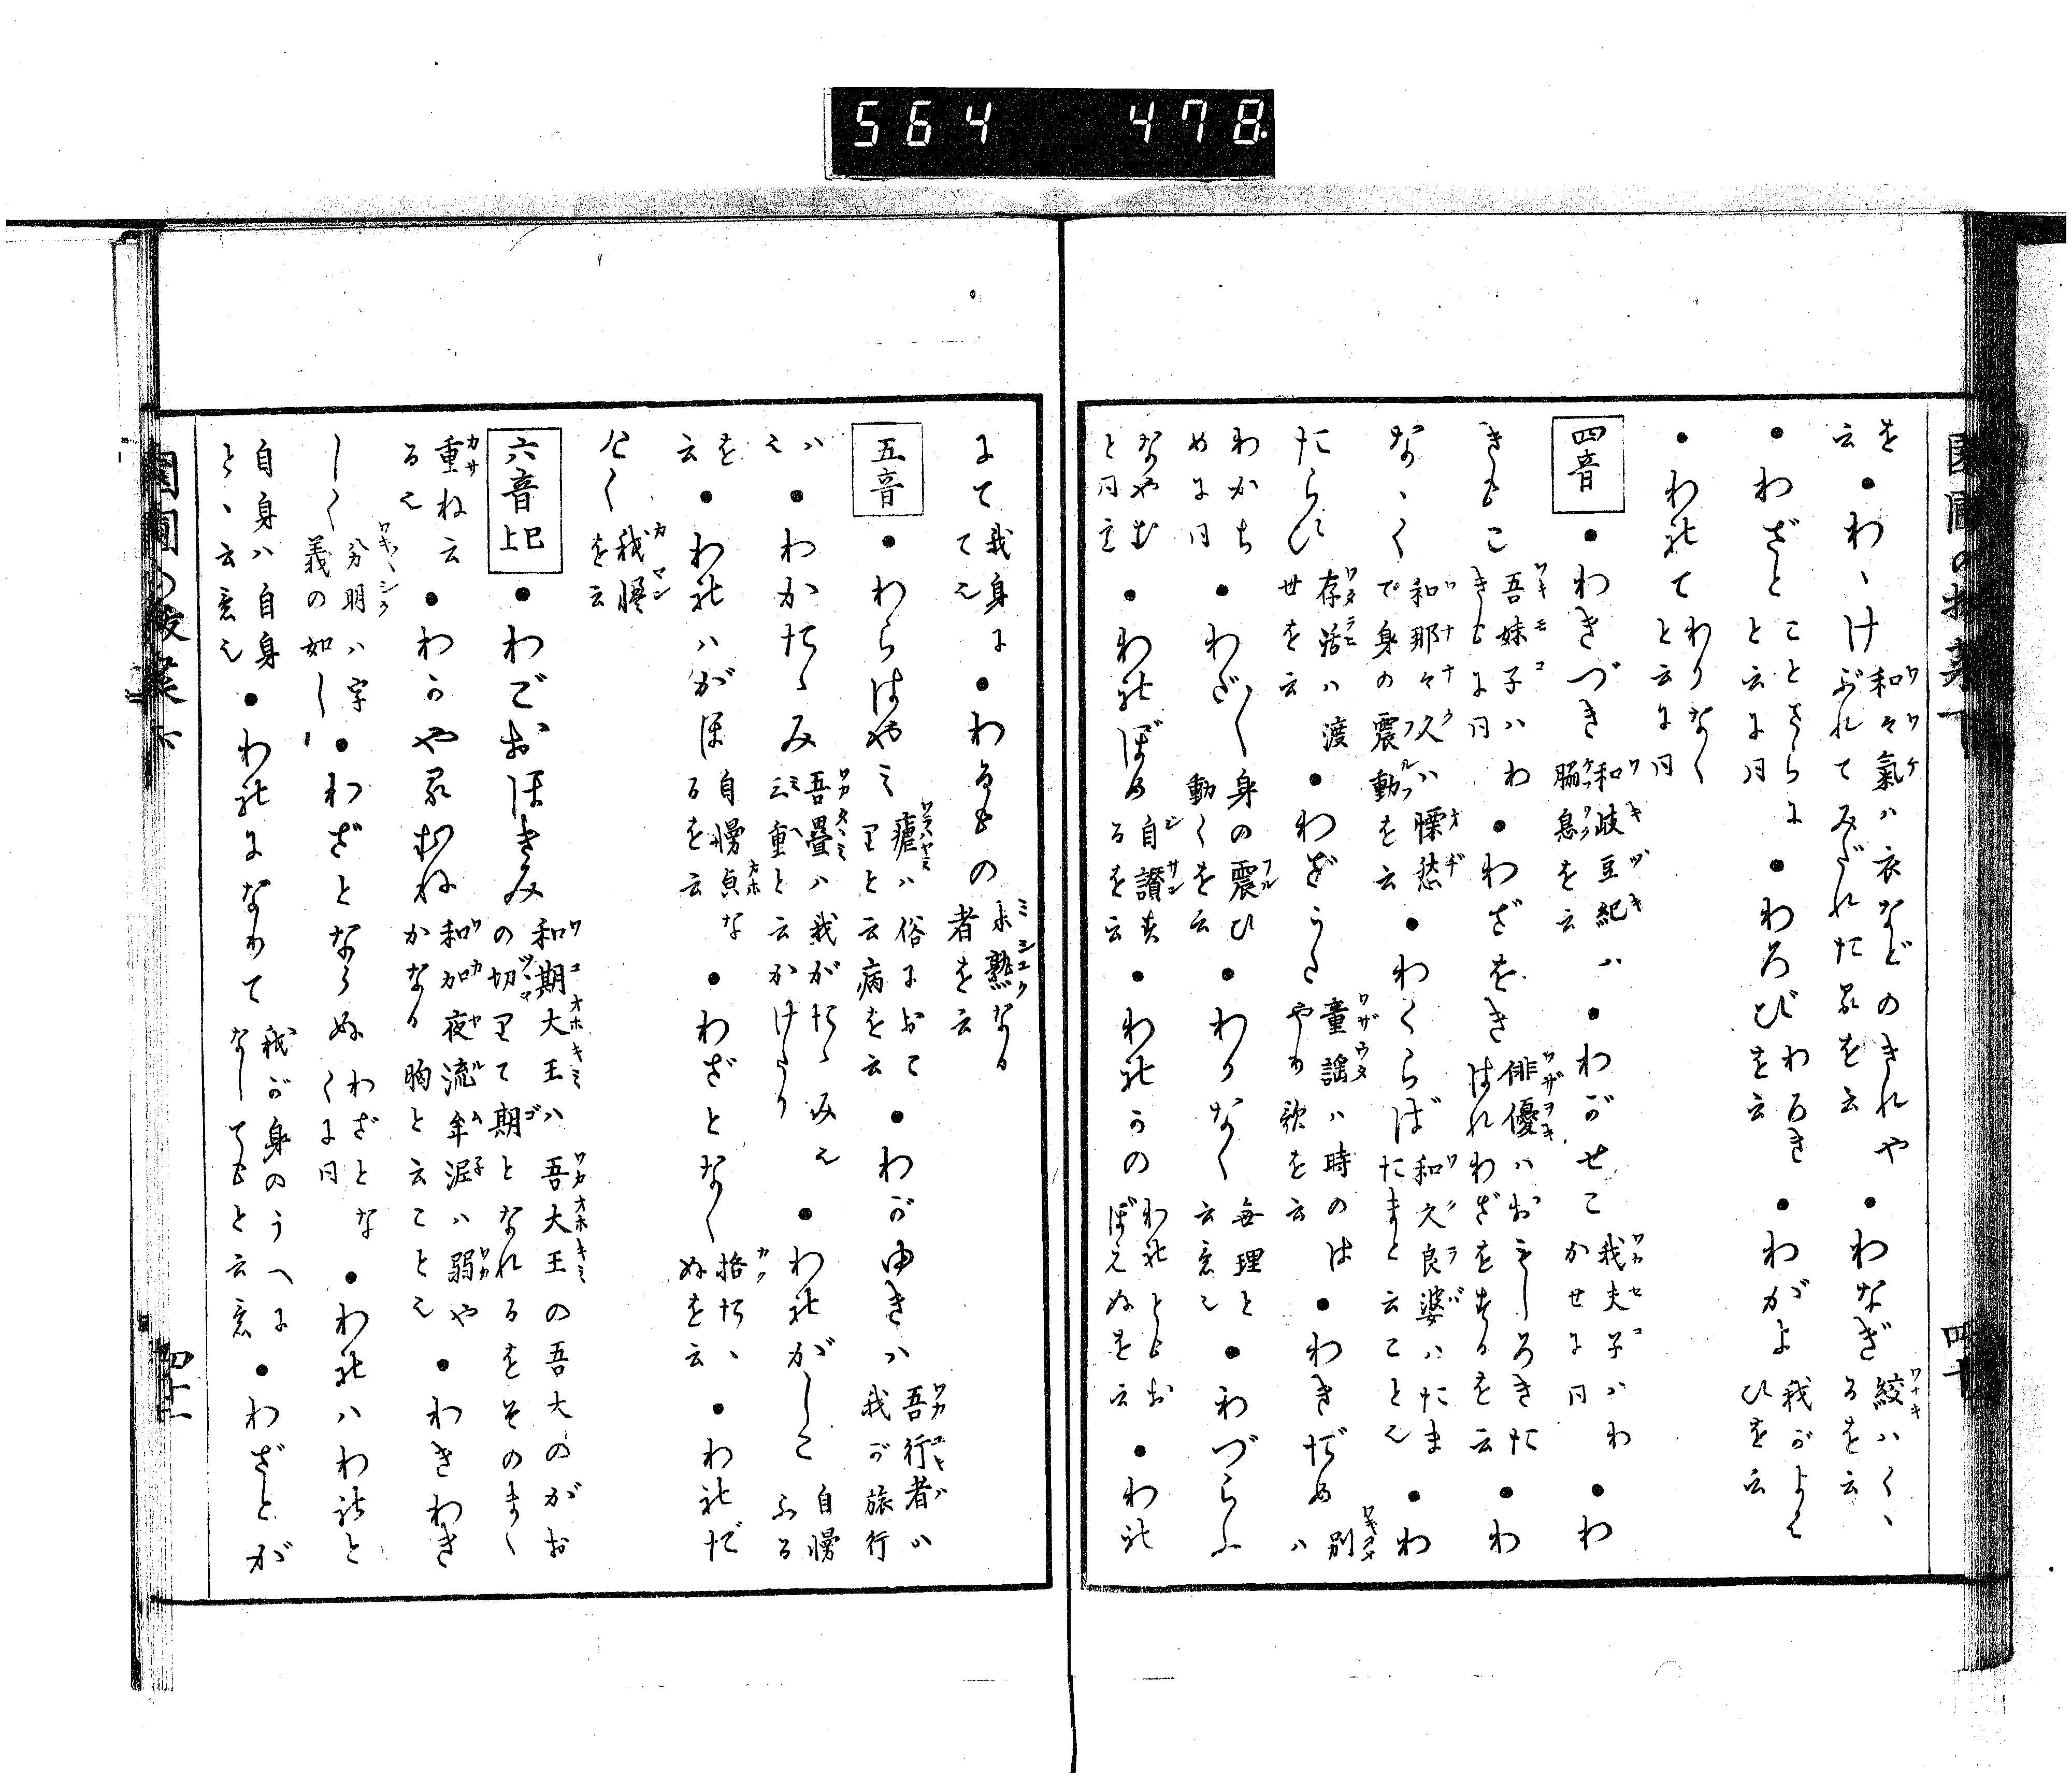 564 478
を云 ●わゝけ 和々氣ハ衣などのきれやぶれてみだれたるを云 ●わなぎ 絞ハくゝるを云
●わざと ことさらにと云に同 ●わろび わろきを云 ●わがよ 我がよはひを云
●われて わりなくと云に同
四音 ●わきづき 和岐豆紀ハ脇息を云 ●わがせこ 我夫子ハわかせに同 ●わ
きもこ 吾妹子ハわきもに同 ●わざをき 俳優ハおもしろきたはれわざをするを云 ●わ
なゝく 和那々久ハ慄愁で身の震動を云 ●わくらば 和久良婆ハたまたまと云こと也 ●わ
たらひ 存活ハ渡世を云 ●わざうた 童謡ハ時のはやり歌を云 ●わきだめ 別ハ
わかちめに同 ●わなゝく 身の震ひ動くを云 ●わりなく 無理と云意也 ●わづらふ
なやむと同意 ●われぼめ 自讃するを云 ●われかの われともおぼえぬを云 ●われ
にて 我身にて也 ●わるもの 未熟なる者を云
五音 ●わらはやミ 瘧ハ俗におこりと云病を云 ●わがゆきハ 吾行者ハ我が旅行
ハ也 ●わがたゝみ 吾疊ハ我がたゝみ也三重と云かけたり ●われがしこ 自慢ふる
を云 ●われハがほ 自慢貞なるを云 ●わざとなく 格だゝぬを云 ●われだ
けく 我慢を云
六音已上 ●わごおほきみ 和期大王ハ吾大王の吾大のがおの切りて期となれるをそのまゝ
重ね云る也 ●わかやるむね 和加夜流牟泥ハ弱やかなる胸と云こと也 ●わきわき
しく 分明ハ字義の如し ●わざとならぬ わざとなくに同 ●われハわれと
自身ハ自身とゝ云意也 ●われになりて 我が身のうへになしてもと云意 ●わざとが